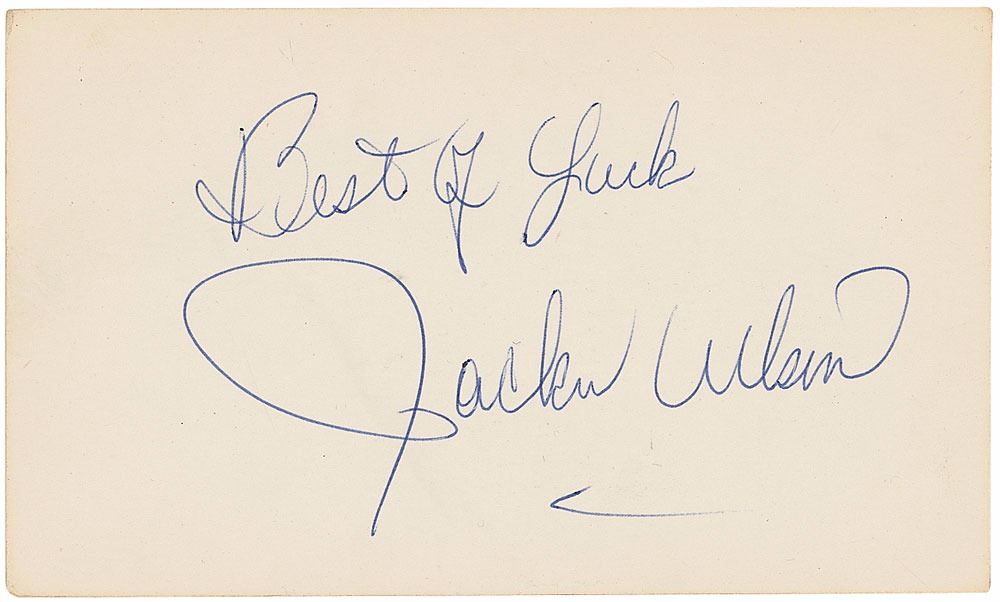 Best of Luck
Jackie Wilson